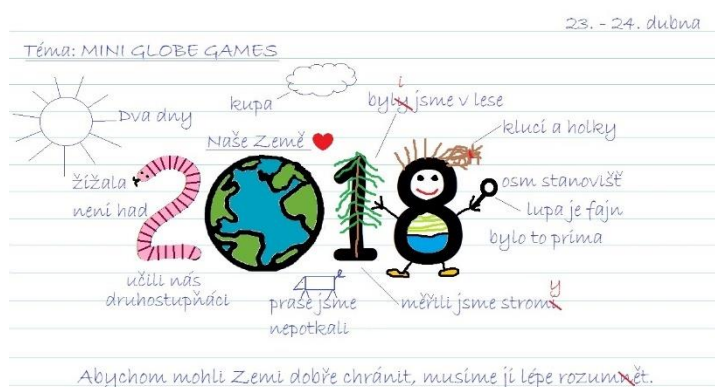 23. - 24. dubna
Téma: MINI GLOBE GAMES
Dva dny
kupa
i
byly jsme v lese
Naše Země
kluci a holky
žížala
není had
2018
osm stanovišť
lupa je fajn
bylo to prima
učili nás
druhostupňáci
prase jsme
nepotkali
y
měřili jsme stromi
Abychom mohli Zemi dobře chránit, musíme jí lépe rozumnět.